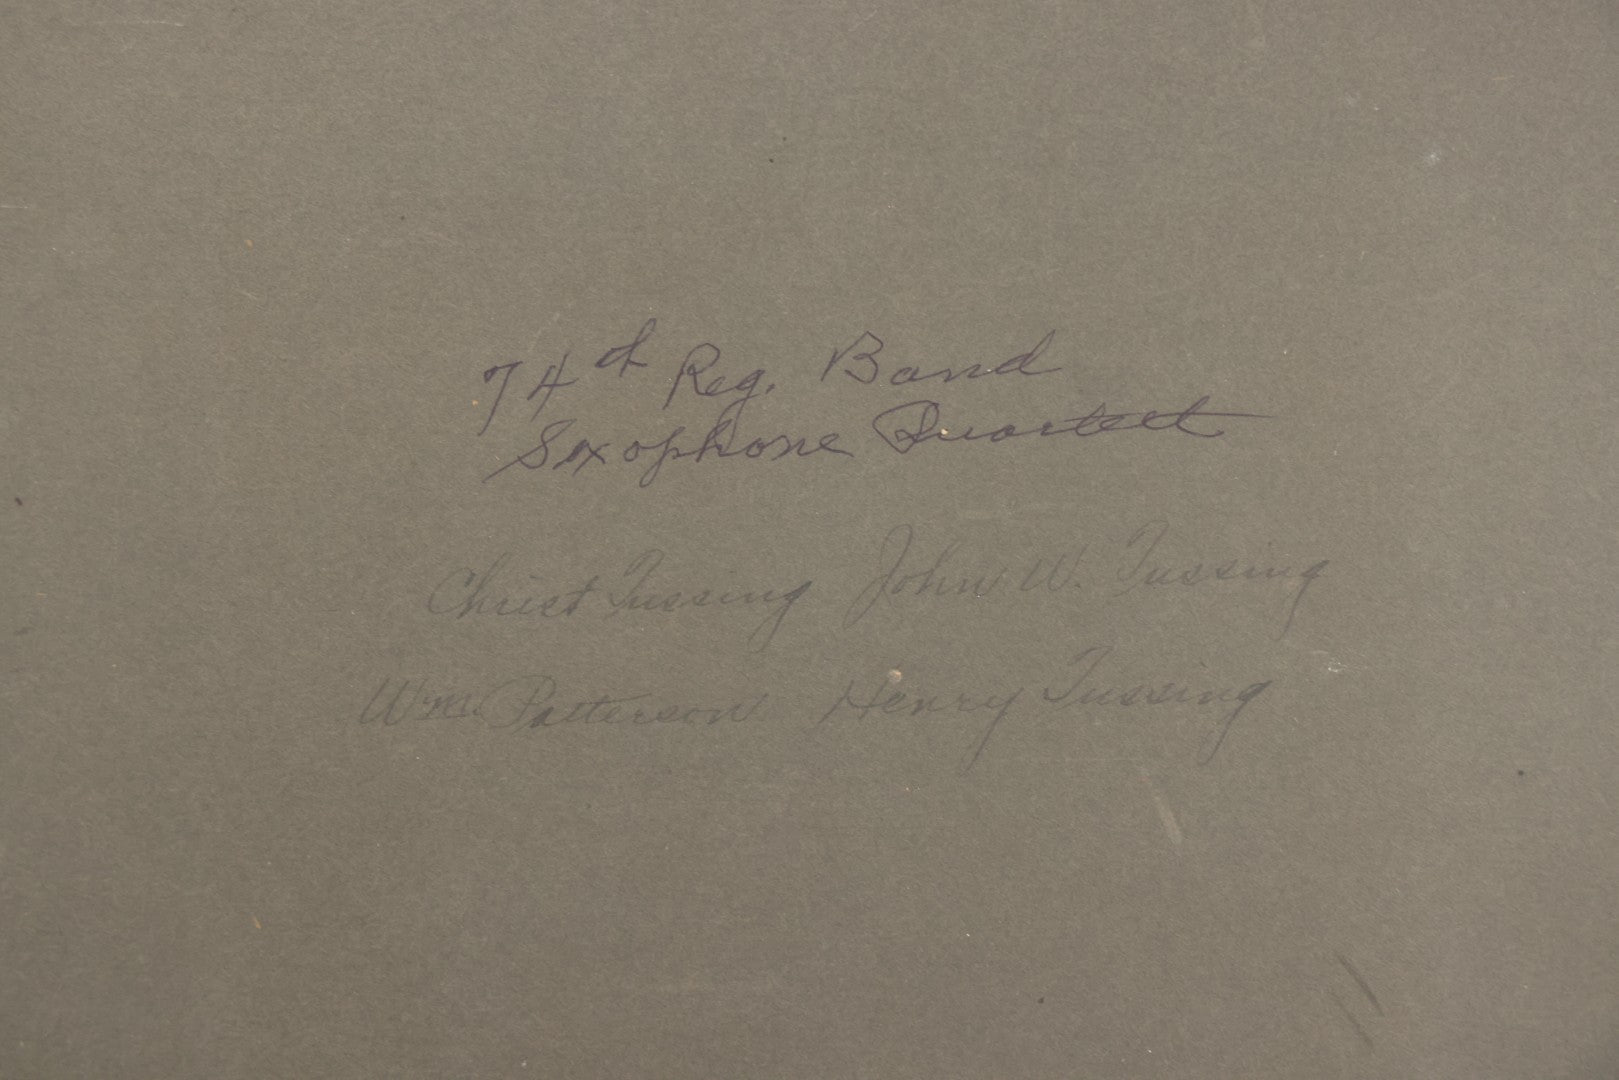 74th Reg. Band
Saxophone Quartett
Christ Tussing John W. Tussing
Wm. Patterson Henry Tussing